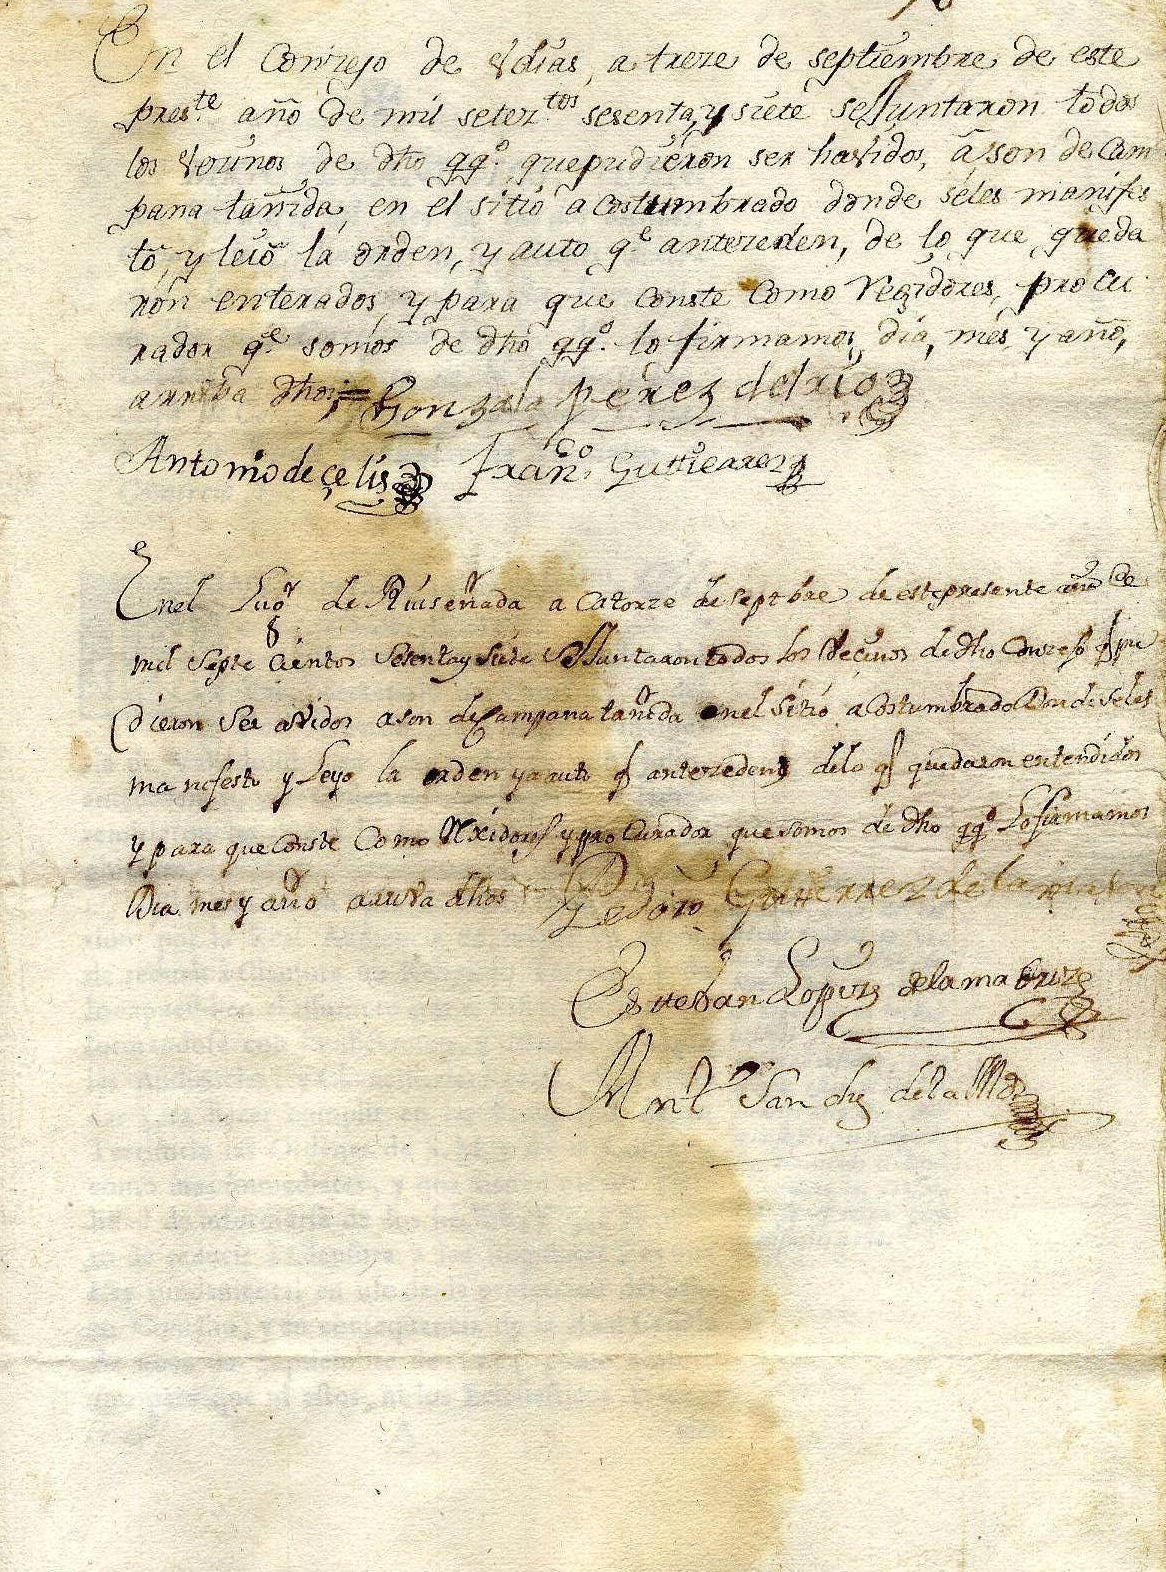 En el Conzejo de Vdias, a treze de septiembre de este
pres.te año de mil setez.tos sesenta, y siete se Juntaron todos
los Vezinos, de dho qq.o que pudieron ser havidos, a son de Cam
pana tañida, en el sitio acostumbrado donde seles manifes
to, y leio la orden, y auto q.e antezeden, de lo que queda
ron enterados, y para que conste Como Regidores, procu
rador q.e somos de dho qq.o lo firmamos, dia, mes y año,
arriba dhos = Gonzalo perez del rio
Antonio de çelis Fran.co Gutierrez
En el Lugr de Ruiseñada a Catorze de septbre de este presente año de
mil Septe Cientos Sesenta y Siete se Juntaron todos los Veçinos de dho Conzejo q pu
dieron Ser avidos a son de Campana tañida en el sitio acostumbrado Donde seles
manifesto y Leyo la orden y auto q antezeden delo q quedaron entendidos
y para que Conste Como Rexidores y proCurador que somos de dho qqo Lo firmamos
Dia mes y año arriva dhos Pedro Gutierrez de la
Esteban Lopez de la madriz
Ant.o Sanchz de la